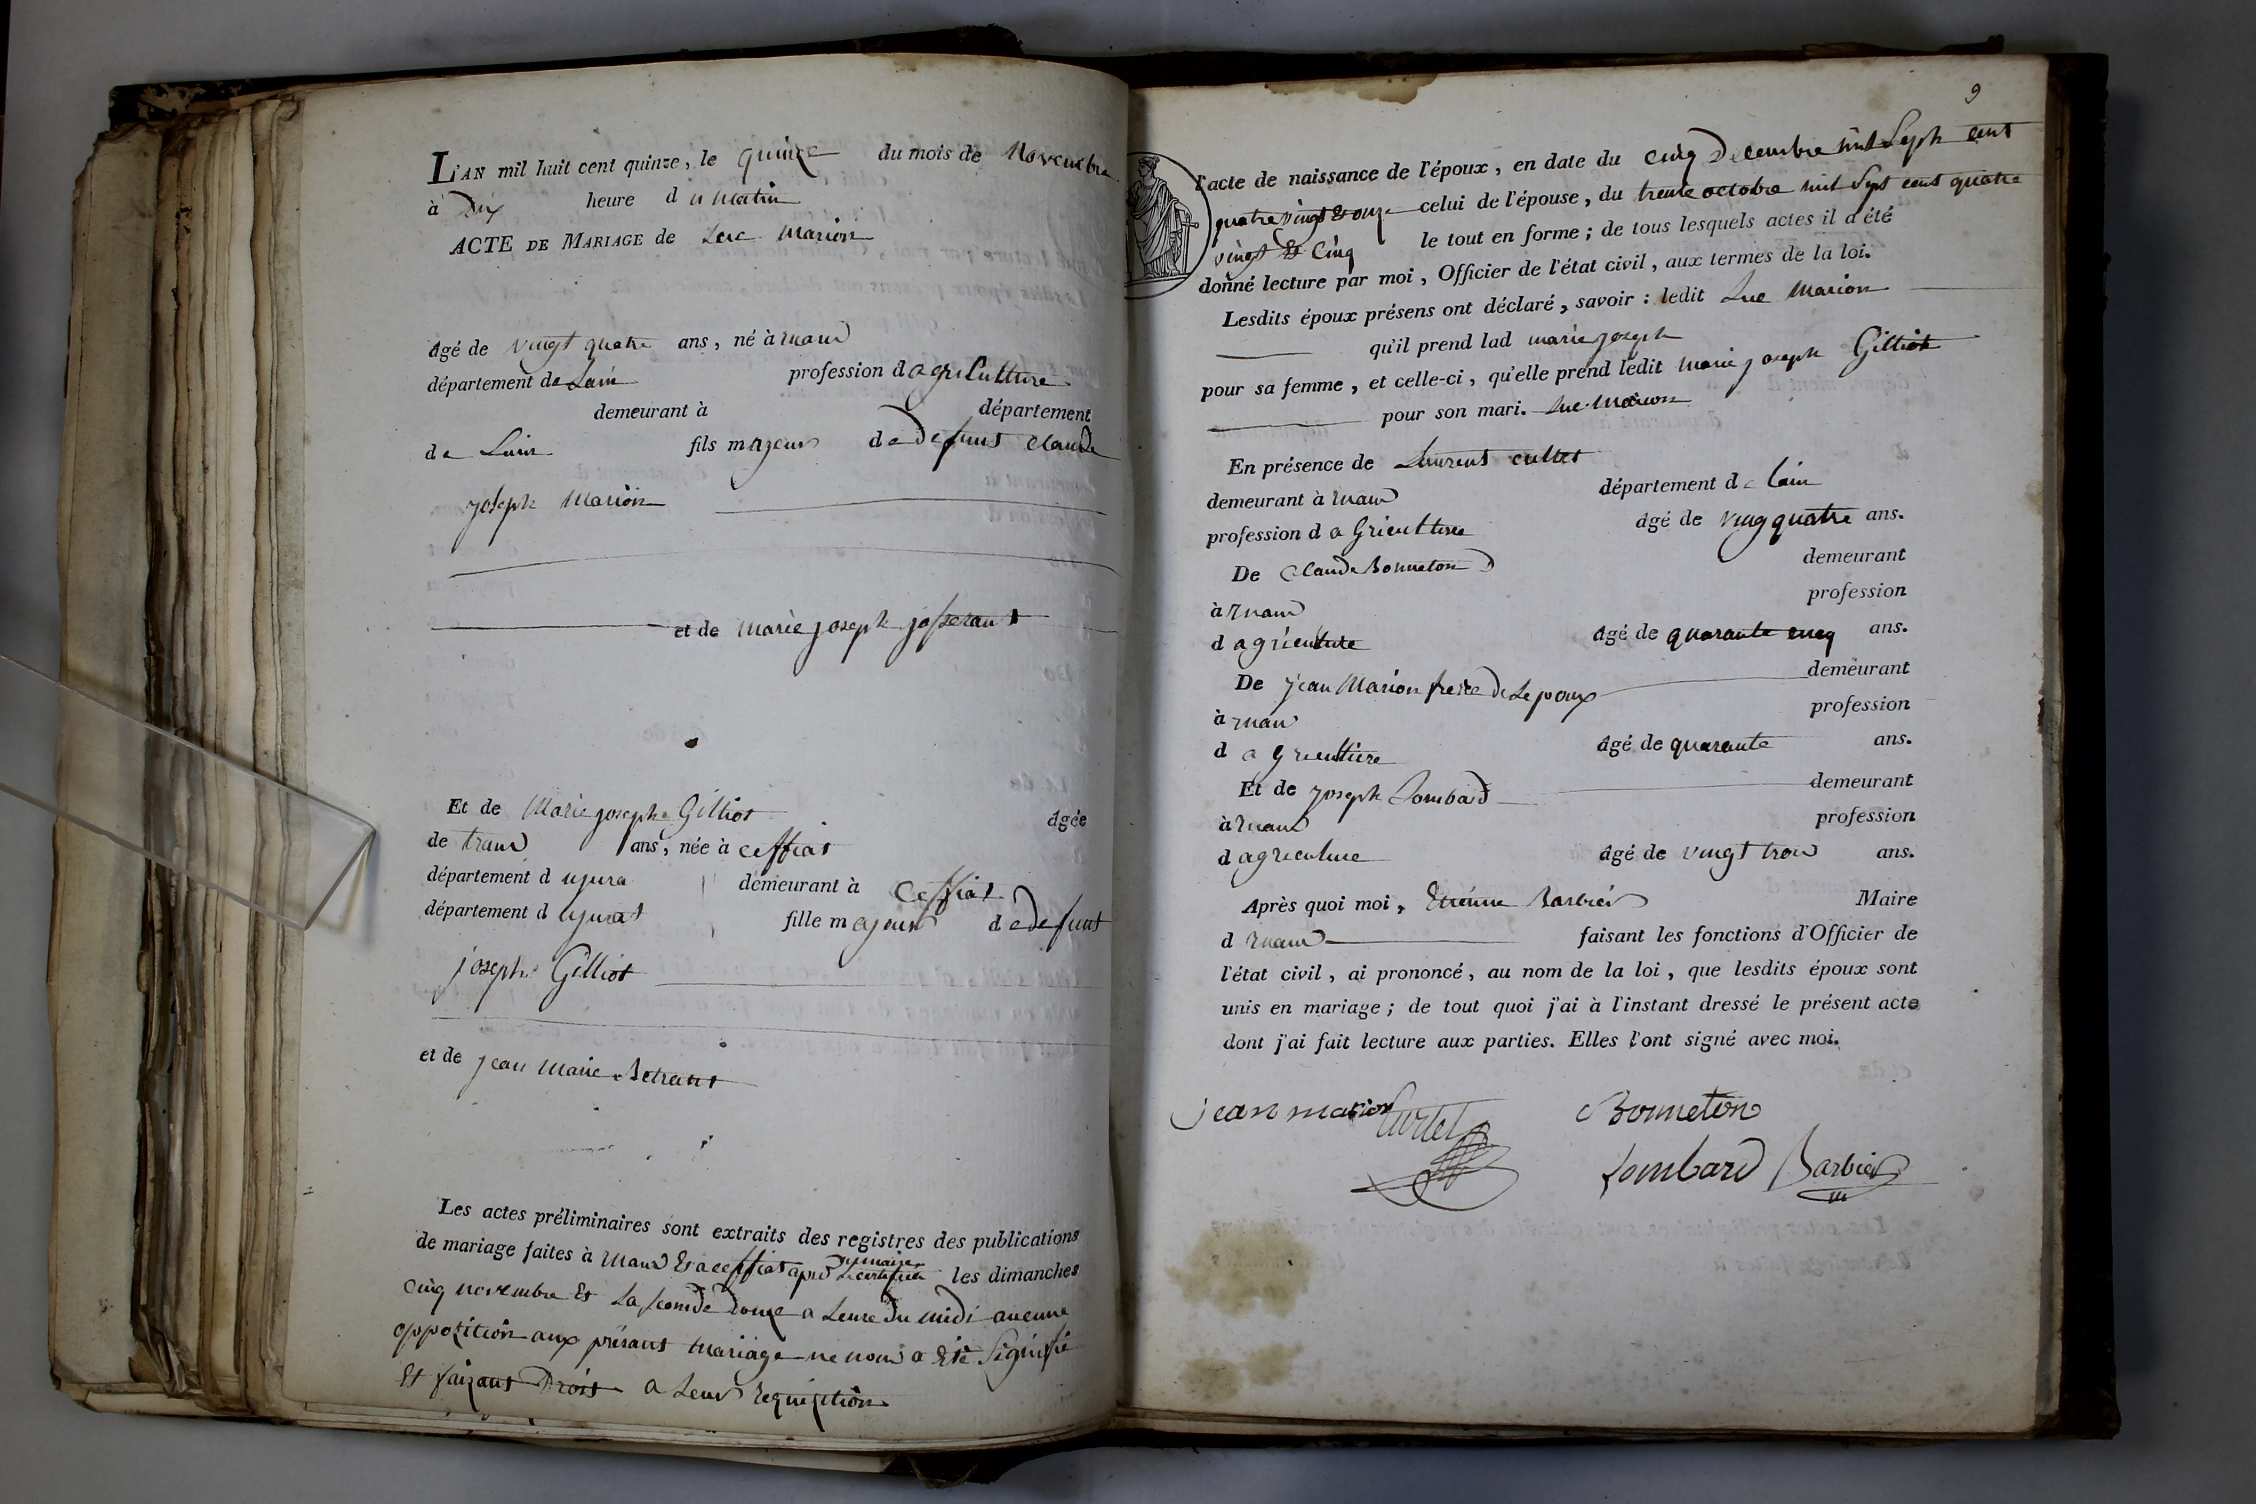 L'AN mil huit cent quinze, le quinze du mois de Novembre
à Dix heure d u Matin
ACTE DE MARIAGE de Luc Marion
âgé de vingt quatre ans, né à
département de Lain profession d agriculture
demeurant à département
de Lain fils majeur de defunt Claude
joseph Marion
et de marie joseph josserant
Et de Marie joseph Gilliot âgée
de trante ans, née à ceffiat
département d ujura demeurant à Ceffiat
département d ujurat fille majeur de defunt
joseph Gilliot
et de jean Marie Betrant
Les actes préliminaires sont extraits des registres des publications
de mariage faites à et a ceffiat les dimanches
cinq novembre Et La seconde Douze a Leure du midi aucune
oppozition aux présant mariage ne nous a Eté Signifié
Et faizant Droit a Leur requiption
9
l'acte de naissance de l'époux, en date du cinq Decembre mil Seph cent
quatre vingt Et onze celui de l'épouse, du trente octobre mil Sept cent quatre
vingt Et Cinq le tout en forme; de tous lesquels actes il a été
donné lecture par moi, Officier de l'état civil, aux termes de la loi.
Lesdits époux présens ont déclaré, savoir: ledit Luc Marion
qu'il prend lad marie joseph
pour sa femme, et celle-ci, qu'elle prend ledit marie joseph Gilliot
pour son mari. Luc Marion
En présence de Laurent
demeurant à département de Lain
profession d a Griculture âgé de vingquatre ans.
De Claude Bonneton demeurant
à profession
d agriculture âgé de quarante cinq ans.
De jean Marion frere de Lepoux demeurant
à profession
d a Griculture âgé de quarante ans.
Et de joseph Lombard demeurant
à profession
d agriculture âgé de vingt trois ans.
Après quoi moi, Etienne Barbier Maire
d faisant les fonctions d'Officier de
l'état civil, ai prononcé, au nom de la loi, que lesdits époux sont
unis en mariage; de tout quoi j'ai à l'instant dressé le présent acte
dont j'ai fait lecture aux parties. Elles l'ont signé avec moi.
jean marion Curtet Bonneton
Lombard Barbier